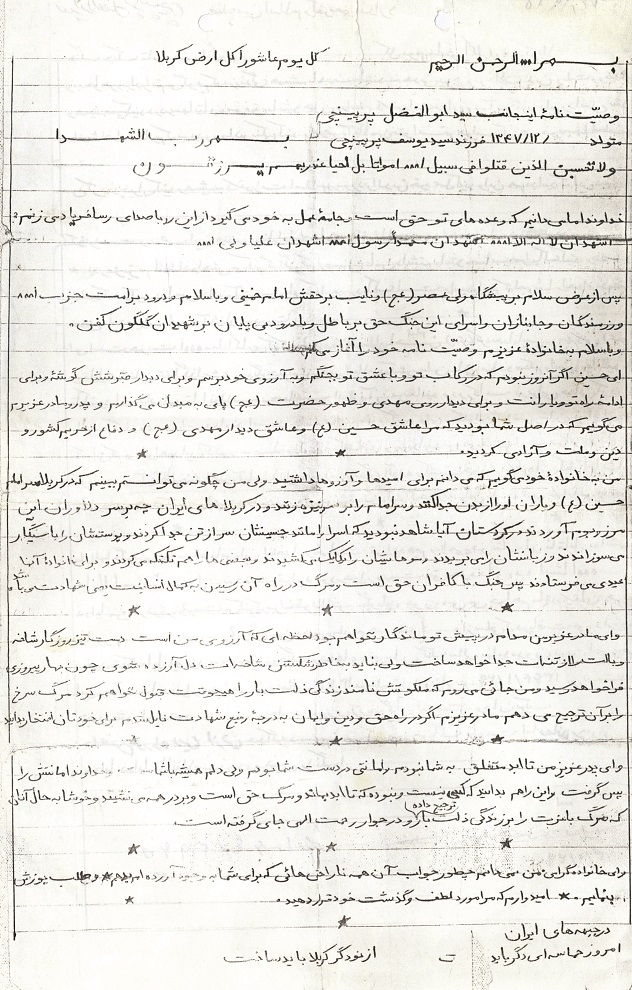 بسم الله الرحمن الرحیم کل یوم عاشورا کل ارض کربلا
وصیّت نامهٔ اینجانب سید ابوالفضل پرپینچی
متولد /۱۳۴۷/۱۲ فرزند سید یوسف پرپینچی بسم رب الشهدا
ولا تحسبن الذین قتلوا فی سبیل الله امواتا بل احیا عند ربهم یرزقون
خداوندا می دانیم که وعده های تو حق است و جامهٔ عمل به خود می گیرد از این رو با صدای رسا فریاد می زنیم:
اشهد ان لا اله الا الله اشهد ان محمداً رسول الله اشهد ان علیا ولی الله
پس از عرض سلام بر پیشگاه ولی عصر (عج) و نایب بر حقش امام خمینی و با سلام و درود بر امت حزب الله
و رزمندگان و جانبازان و اسرای این جنگ حق بر باطل و با درود بی پایان بر شهیدان گلگون کفن.
و با سلام به خانوادهٔ عزیزم وصیّت نامه خود را آغاز می کنم
ای حسین اگر آنروز نبودم که در رکاب تو و با عشق تو بجنگم و به آرزوی خود برسم و برای دیدار شش گوشهٔ و برای
ادامهٔ راه تو و یارانت و برای دیدار روی مهدی و ظهور حضرت (عج) پای به میدان می گذاریم و پدر و مادر عزیزم
می گویم که در اصل شما بودید که مرا عاشق حسین (ع) و عاشق دیدار مهدی (عج) و دفاع از حریم کشور و
دین و ملت و آزادی کردید.
من به خانوادهٔ خود می گویم که می دانم برای امیدها و آرزوها داشتید ولی من چگونه می توانستم ببینم که در کربلا سر امام
حسین (ع) و یاران او را از بدن جدا کنند و سر امام را بر سر نیزه زنند و در کربلا های ایران چه بر سر دلاوران این
مرز و بوم آوردند در کردستان آیا شاهد نبودید که اسرا را مانند حسینشان سر از تن جدا کردند و پوستشان را با سیگار
می سوزاندند و زبانشان را می بریدند و سرهایشان را یک یک می کشیدند و بعضی ها را هم تکه تکه می کردند و برای خانوادهٔ آنها
عیدی می فرستادند پس جنگ با کافران حق است و مرگ در راه آن رسیدن به کمال انسانیت یعنی شهادت می باشد
وای مادر عزیز من مدام در پیش تو ماندگار نخواهم بود لحظه ای که آرزوی من است دست تیز روزگار شانه
و بالت را از تنت جدا خواهد ساخت ولی نباید بخاطر شکستن شاخه ات دل آزرده شوی چون بهار پیروزی
فرا خواهد رسید و من جائی می روم که ملکوتش نامند زندگی ذلت بار را هیچوقت قبول نخواهم کرد مرگ سرخ
را بر آن ترجیح می دهم مادر عزیزم اگر در راه حق و دین و ایمان به درجهٔ رفیع شهادت نایل شدم برای خودتان افتخار بدانید
وای پدر عزیز من تا ابد متعلق به شما نبودم و امانتی در دست شما بودم ولی دلم همیشه با شما خداوند امانتش را
پس گرفت و این را هم بدانید که کسی نیست و نبوده که تا ابد بماند و مرگ حق است و بر در همه می نشیند و خوشا به حال آنان
که مرگ با عزیت را بر زندگی ذلت بار ترجیح داده و در جوار رحمت الهی جای گرفته است
وای خانوادهٔ گرامی من نمی دانم چطور جواب آن همه ناراحتی هائی که برای شما به وجود آورده ام بدهم و طلب پوزش
بنمایم. امیدوارم که مرا مورد لطف و گذشت خود قرار دهید.
در جبهه های ایران
امروز حماسه ای دگر باید از نو دگر کربلا باید ساخت